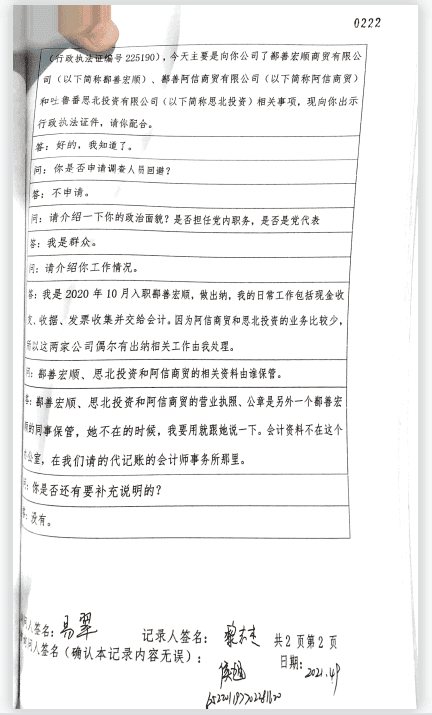 0222
(行政执法证编号225190),今天主要是向你公司了鄯善宏顺商贸有限公
司(以下简称鄯善宏顺)、鄯善阿信商贸有限公司(以下简称阿信商贸)
和吐鲁番思北投资有限公司(以下简称思北投资)相关事项,现向你出示
行政执法证件,请你配合。
答:好的,我知道了。
问:你是否申请调查人员回避?
答:不申请。
问:请介绍一下你的政治面貌?是否担任党内职务,是否是党代表
答:我是群众。
问:请介绍你工作情况。
答:我是2020年10月入职鄯善宏顺,做出纳,我的日常工作包括现金收
发、收据、发票收集并交给会计。因为阿信商贸和思北投资的业务比较少,
所以这两家公司偶尔有出纳相关工作由我处理。
问:鄯善宏顺、思北投资和阿信商贸的相关资料由谁保管。
答:鄯善宏顺、思北投资和阿信商贸的营业执照、公章是另外一个鄯善宏
顺的同事保管,她不在的时候,我要用就跟她说一下。会计资料不在这个
办公室,在我们请的代记账的会计师事务所那里。
问:你是否还有要补充说明的?
答:没有。
人签名:易翠 记录人签名: 共2页第2页
问人签名(确认本记录内容无误): 日期:2021.4.9